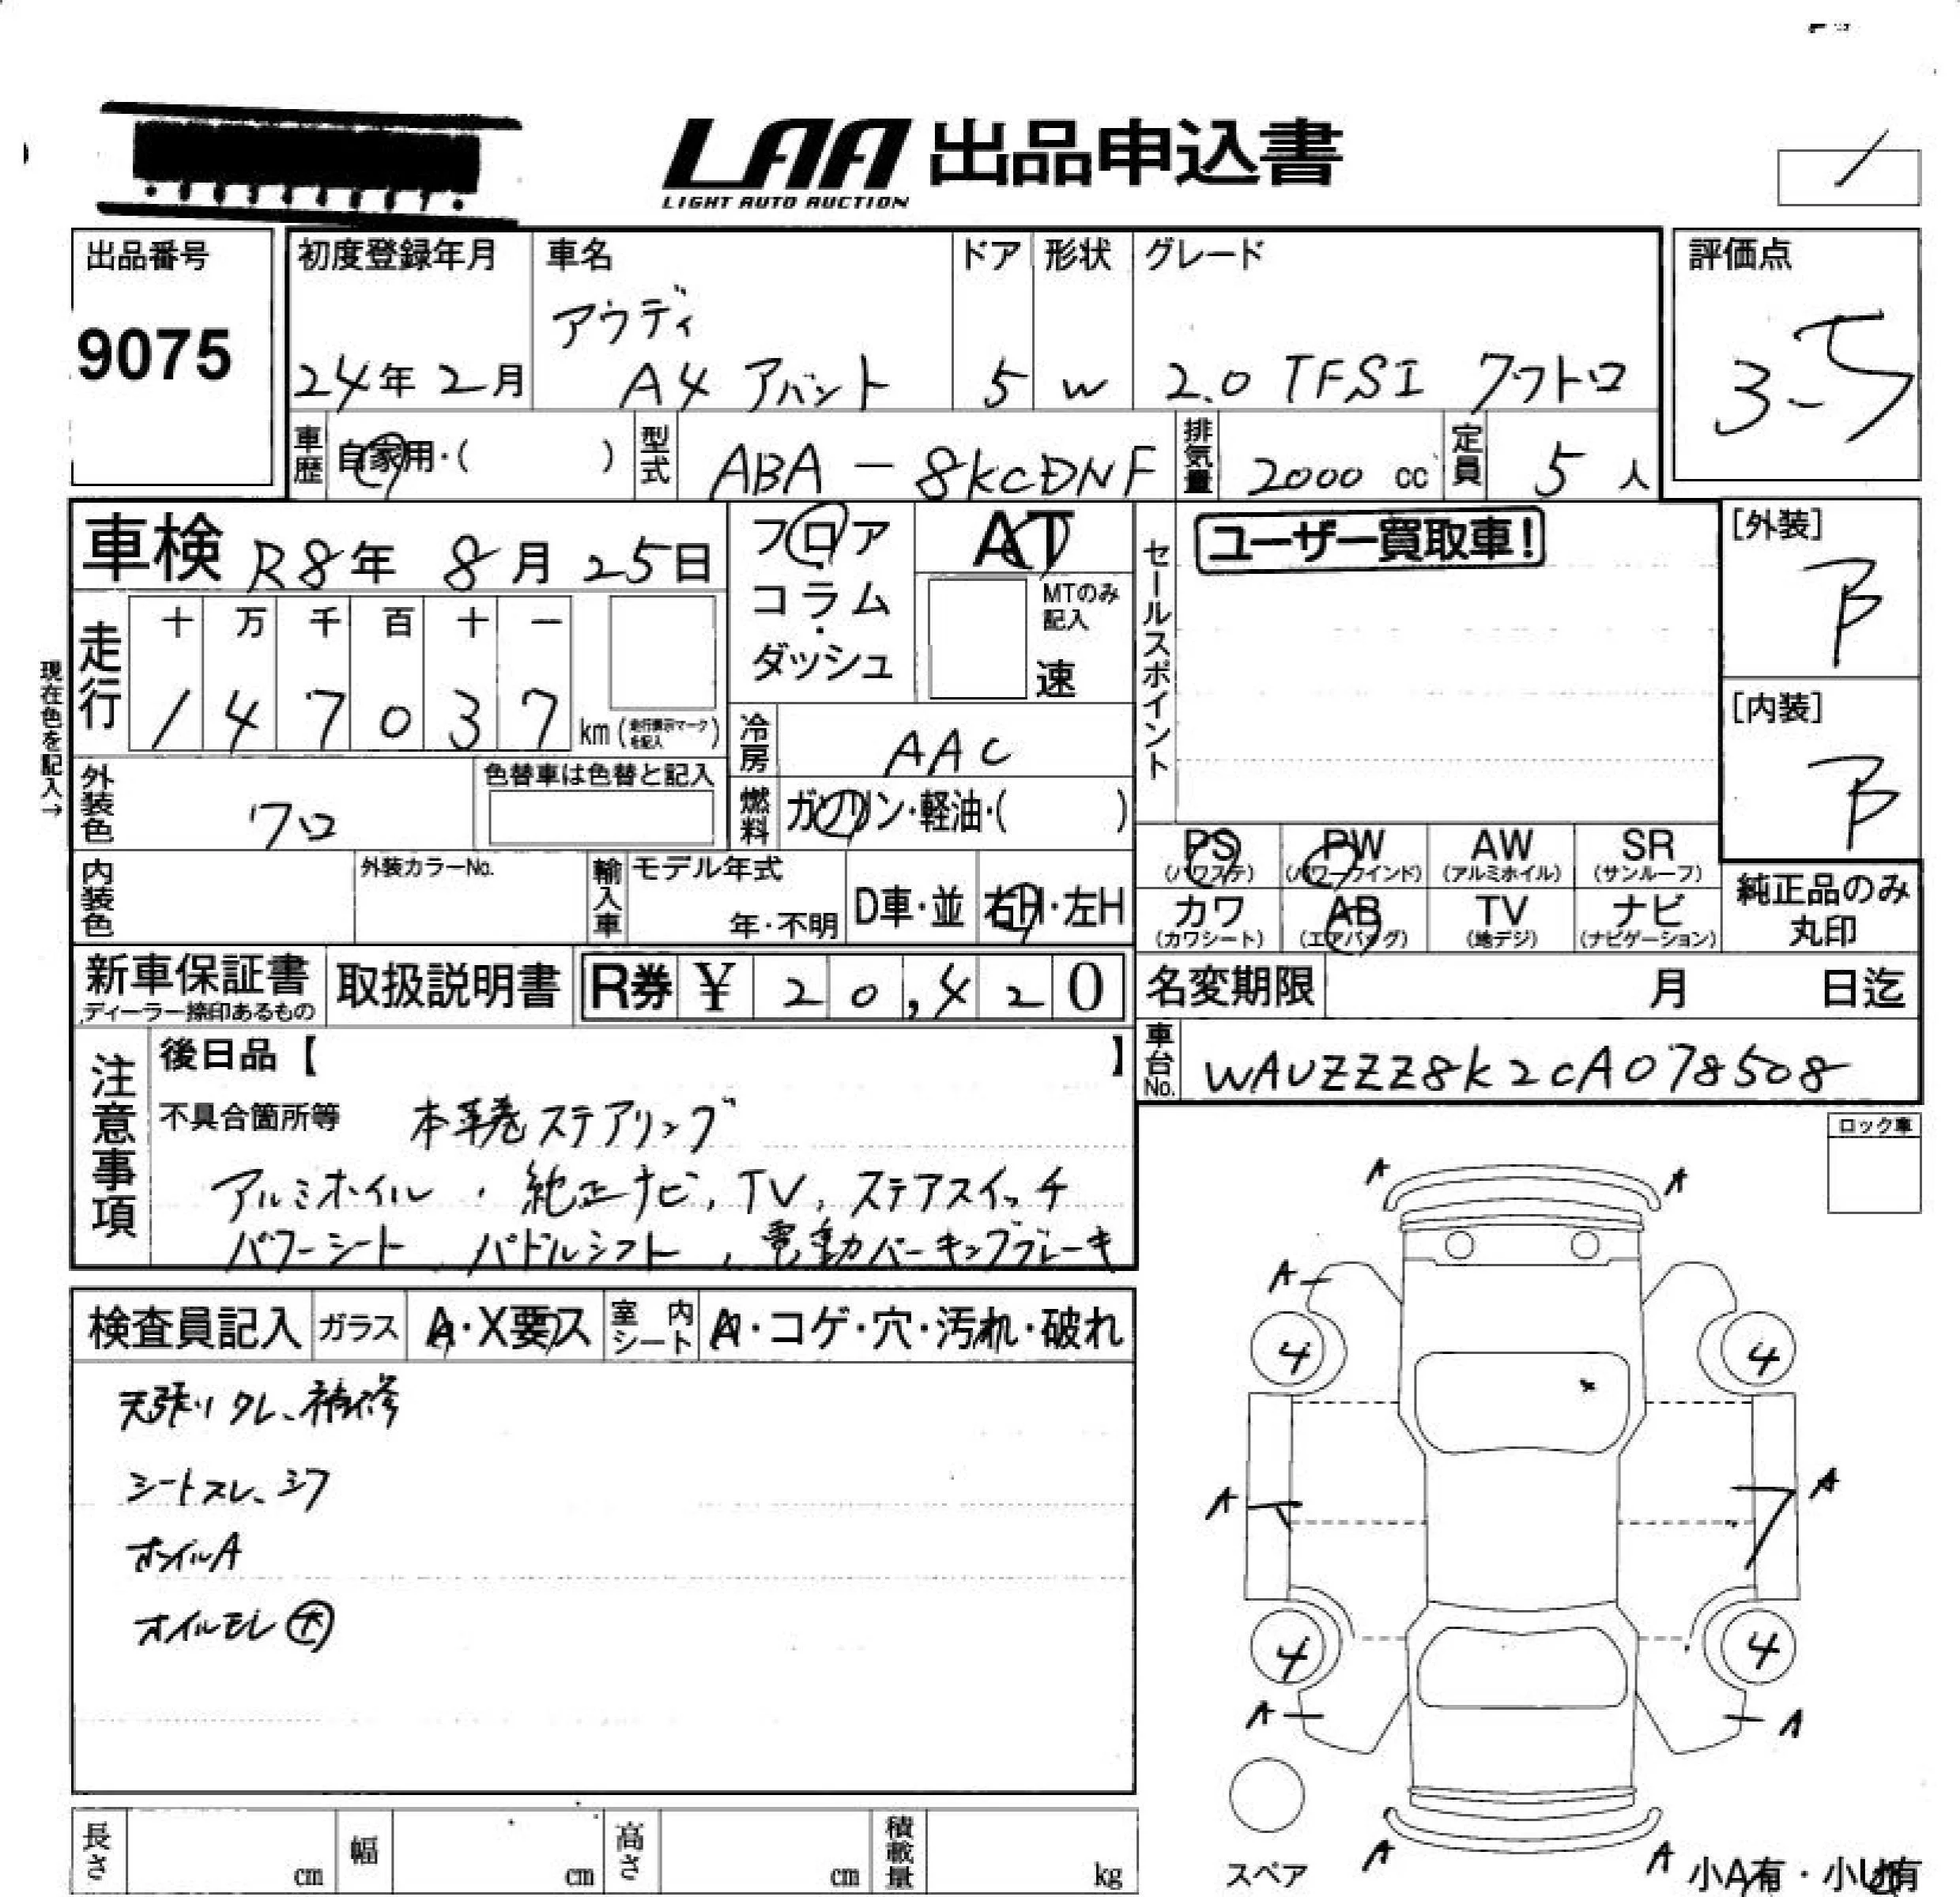 LAA 出品申込書
LIGHT AUTO AUCTION
出品番号
9075
初度登録年月
24年 2月
車名
アウディ
A4 アバント
ドア
5
形状
W
グレード
2.0 TFSI クワトロ
評価点
3.5
車歴
自家用・( )
型式
ABA-8KCDNF
排気量
2000 cc
定員
5 人
車検 R8年 8月 25日
走行
十 万 千 百 十 一
1 4 7 0 3 7 km (走行表示マークを記入)
現在色を記入→
外装色
クロ
色替車は色替と記入
内装色
外装カラーNo.
フロア
コラム
ダッシュ
AT
MTのみ記入
速
冷房
AAC
燃料
ガソリン・軽油・( )
輸入車
モデル年式
年・不明
D車・並
右H・左H
セールスポイント
ユーザー買取車!
[外装]
B
[内装]
B
PS (パワステ)
PW (パワーウインド)
AW (アルミホイル)
SR (サンルーフ)
カワ (カワシート)
AB (エアバッグ)
TV (地デジ)
ナビ (ナビゲーション)
純正品のみ丸印
新車保証書
ディーラー捺印あるもの
取扱説明書
R券 ¥ 20,420
名変期限 月 日迄
車台No.
WAUZZZ8K2CA078508
注意事項
後日品【 】
不具合箇所等 本革巻ステアリング
アルミホイル、純正ナビ、TV、ステアスイッチ
パワーシート、パドルシフト、電動パーキングブレーキ
検査員記入
ガラス A・X要ス
室内シート A・コゲ・穴・汚れ・破れ
天張りタレ、補修
シートスレ、シワ
ホイルA
オイルモレ 大
長さ cm
幅 cm
高さ cm
積載量 kg
ロック車
A A
A
4 4
A A
4 4
A A
スペア
A A
小A有・小U有